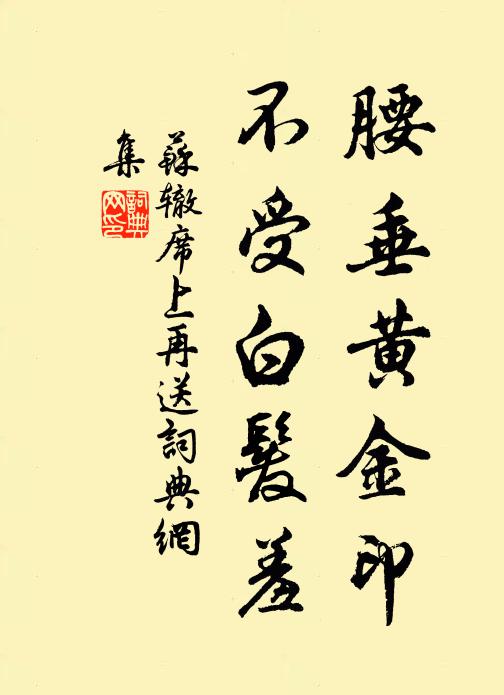 腰垂黄金印
不受白髮羞
蘇辙席上再送詞典網
集
詞典網印